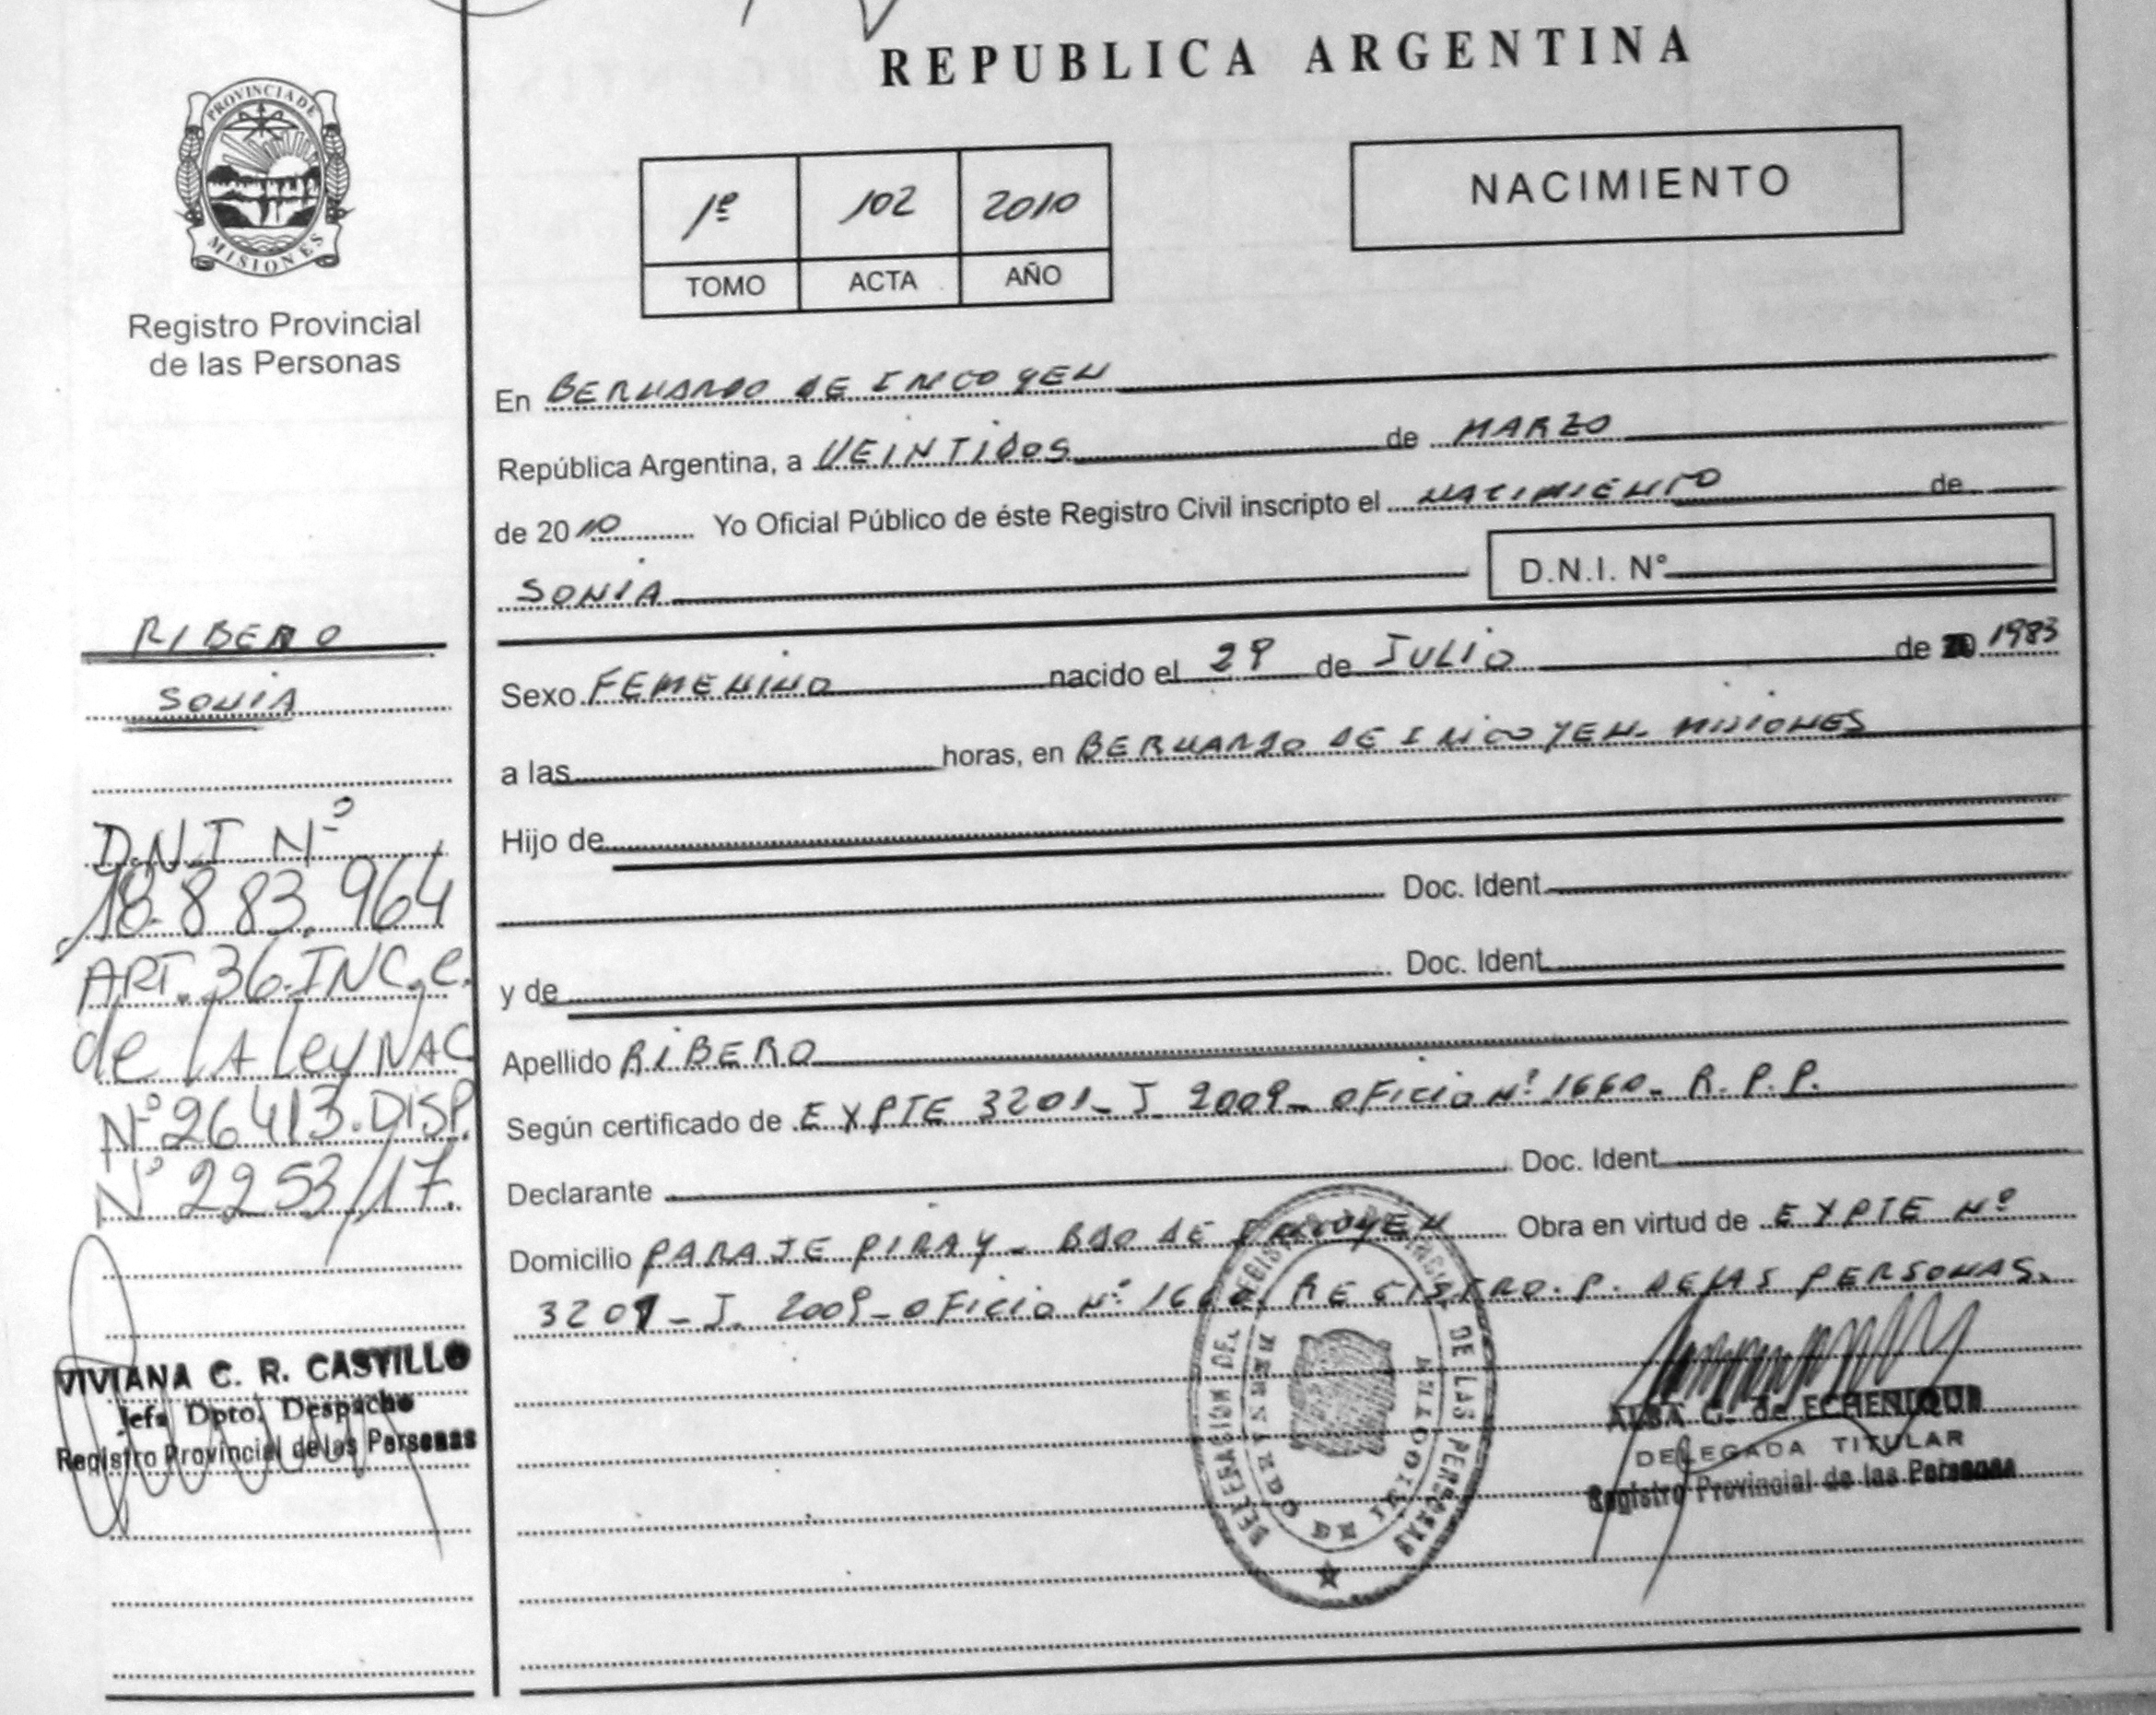 REPUBLICA ARGENTINA
PROVINCIA DE
MISIONES
Registro Provincial
de las Personas
1º 102 2010
TOMO ACTA AÑO
NACIMIENTO
En BERNARDO DE IRIGOYEN
República Argentina, a VEINTIDOS de MARZO
de 2010 Yo Oficial Público de éste Registro Civil inscripto el NACIMIENTO de
SONIA D.N.I. Nº
Sexo FEMENINO nacido el 29 de JULIO de 1983
a las horas, en BERNARDO DE IRIGOYEN - MISIONES
Hijo de
Doc. Ident.
y de Doc. Ident.
Apellido RIBERO
Según certificado de EXPTE 3201 - J 2009 - OFICIO Nº 1660 - R.P.P.
Declarante Doc. Ident.
Domicilio PARAJE PIRAY - BDO DE IRIGOYEN Obra en virtud de EXPTE Nº
3201 - J. 2009 - OFICIO Nº 1660 REGISTRO. P. DE LAS PERSONAS.
RIBERO
SONIA
D.N.I. Nº
18.883.964
ART. 36. INC. C.
de LA Ley NAC
Nº 26413. DISP.
Nº 2253/17.
VIVIANA C. R. CASTILLO
Jefa Dpto. Despacho
Registro Provincial de las Personas
DE LAS PERSONAS
ALBA G. de ECHENIQUE
DELEGADA TITULAR
Registro Provincial de las Personas